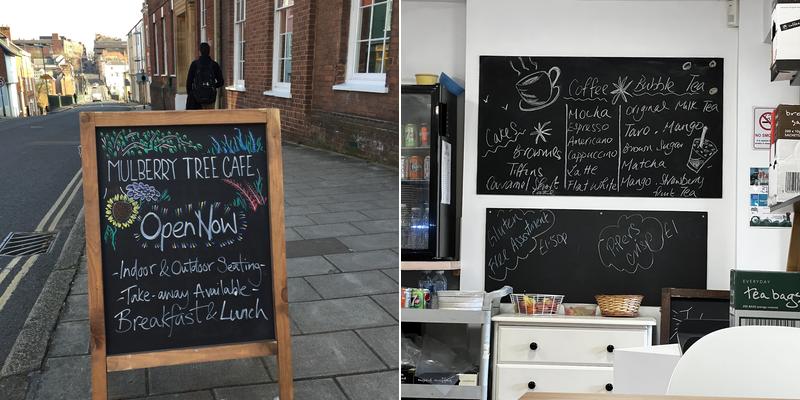 MULBERRY TREE CAFE
Open Now
-Indoor & Outdoor Seating-
-Take-away Available-
Breakfast & Lunch
Coffee
Mocha
Espresso
Americano
Cappuccino
Latte
Flat white
Bubble Tea
original Milk Tea
Taro . Mango
Brown Sugar
Matcha
Mango . Strawberry
Fruit Tea
Cakes
Brownies
Tiffins
Caramel Short
Gluten
Free Assortment
£1-50p
Pipers
crisp
£1
NO SMO
EVERYDAY
tea bags